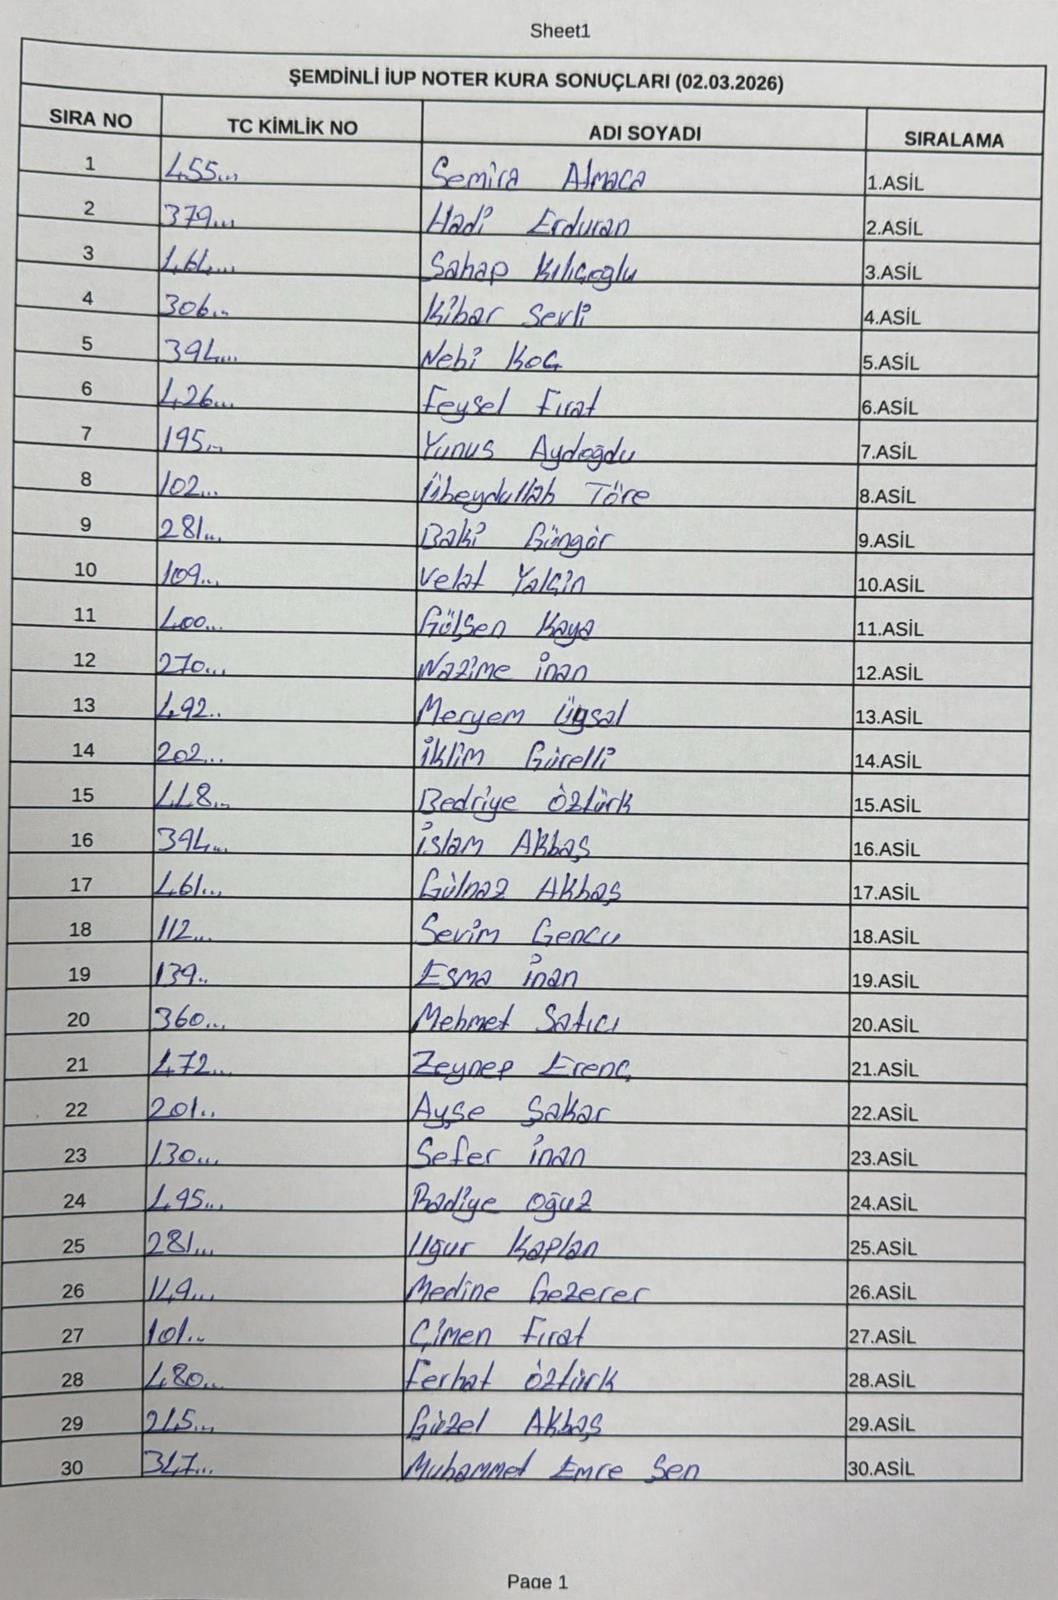 Sheet1
ŞEMDİNLİ İUP NOTER KURA SONUÇLARI (02.03.2026)
SIRA NO TC KİMLİK NO ADI SOYADI SIRALAMA
1 455... Semira Atmaca 1.ASİL
2 379... Hadi Erduran 2.ASİL
3 461... Sahap Kılıçoğlu 3.ASİL
4 306... Kibar Sevli 4.ASİL
5 394... Nebi Koç 5.ASİL
6 426... Feysel Fırat 6.ASİL
7 195... Yunus Aydoğdu 7.ASİL
8 102... Übeydullah Töre 8.ASİL
9 281... Baki Güngör 9.ASİL
10 109... Velat Yalçin 10.ASİL
11 400... Gülşen Kaya 11.ASİL
12 270... Nazime İnan 12.ASİL
13 492.. Meryem Üysal 13.ASİL
14 202... İklim Gürelli 14.ASİL
15 448... Bedriye Öztürk 15.ASİL
16 394... İslam Akbaş 16.ASİL
17 461... Gülnaz Akbaş 17.ASİL
18 112... Sevim Gencu 18.ASİL
19 139.. Esma İnan 19.ASİL
20 360... Mehmet Satıcı 20.ASİL
21 472... Zeynep Erenç 21.ASİL
22 201... Ayşe Şakar 22.ASİL
23 130... Sefer İnan 23.ASİL
24 495... Badiye Oğuz 24.ASİL
25 281... Uğur Kaplan 25.ASİL
26 149... Medine Gezerer 26.ASİL
27 101... Çimen Fırat 27.ASİL
28 480... Ferhat Öztürk 28.ASİL
29 245... Güzel Akbaş 29.ASİL
30 347... Muhammet Emre Şen 30.ASİL
Page 1